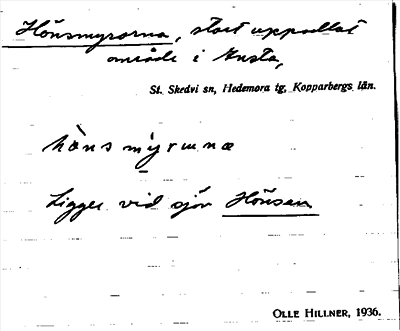 Hönsmyrorna, stort uppodlat
område i Husta,
St. Skedvi sn, Hedemora tg, Kopparbergs län.
hönsmyrunæ
Ligger vid sjön Hönsen
OLLE HILLNER, 1936.